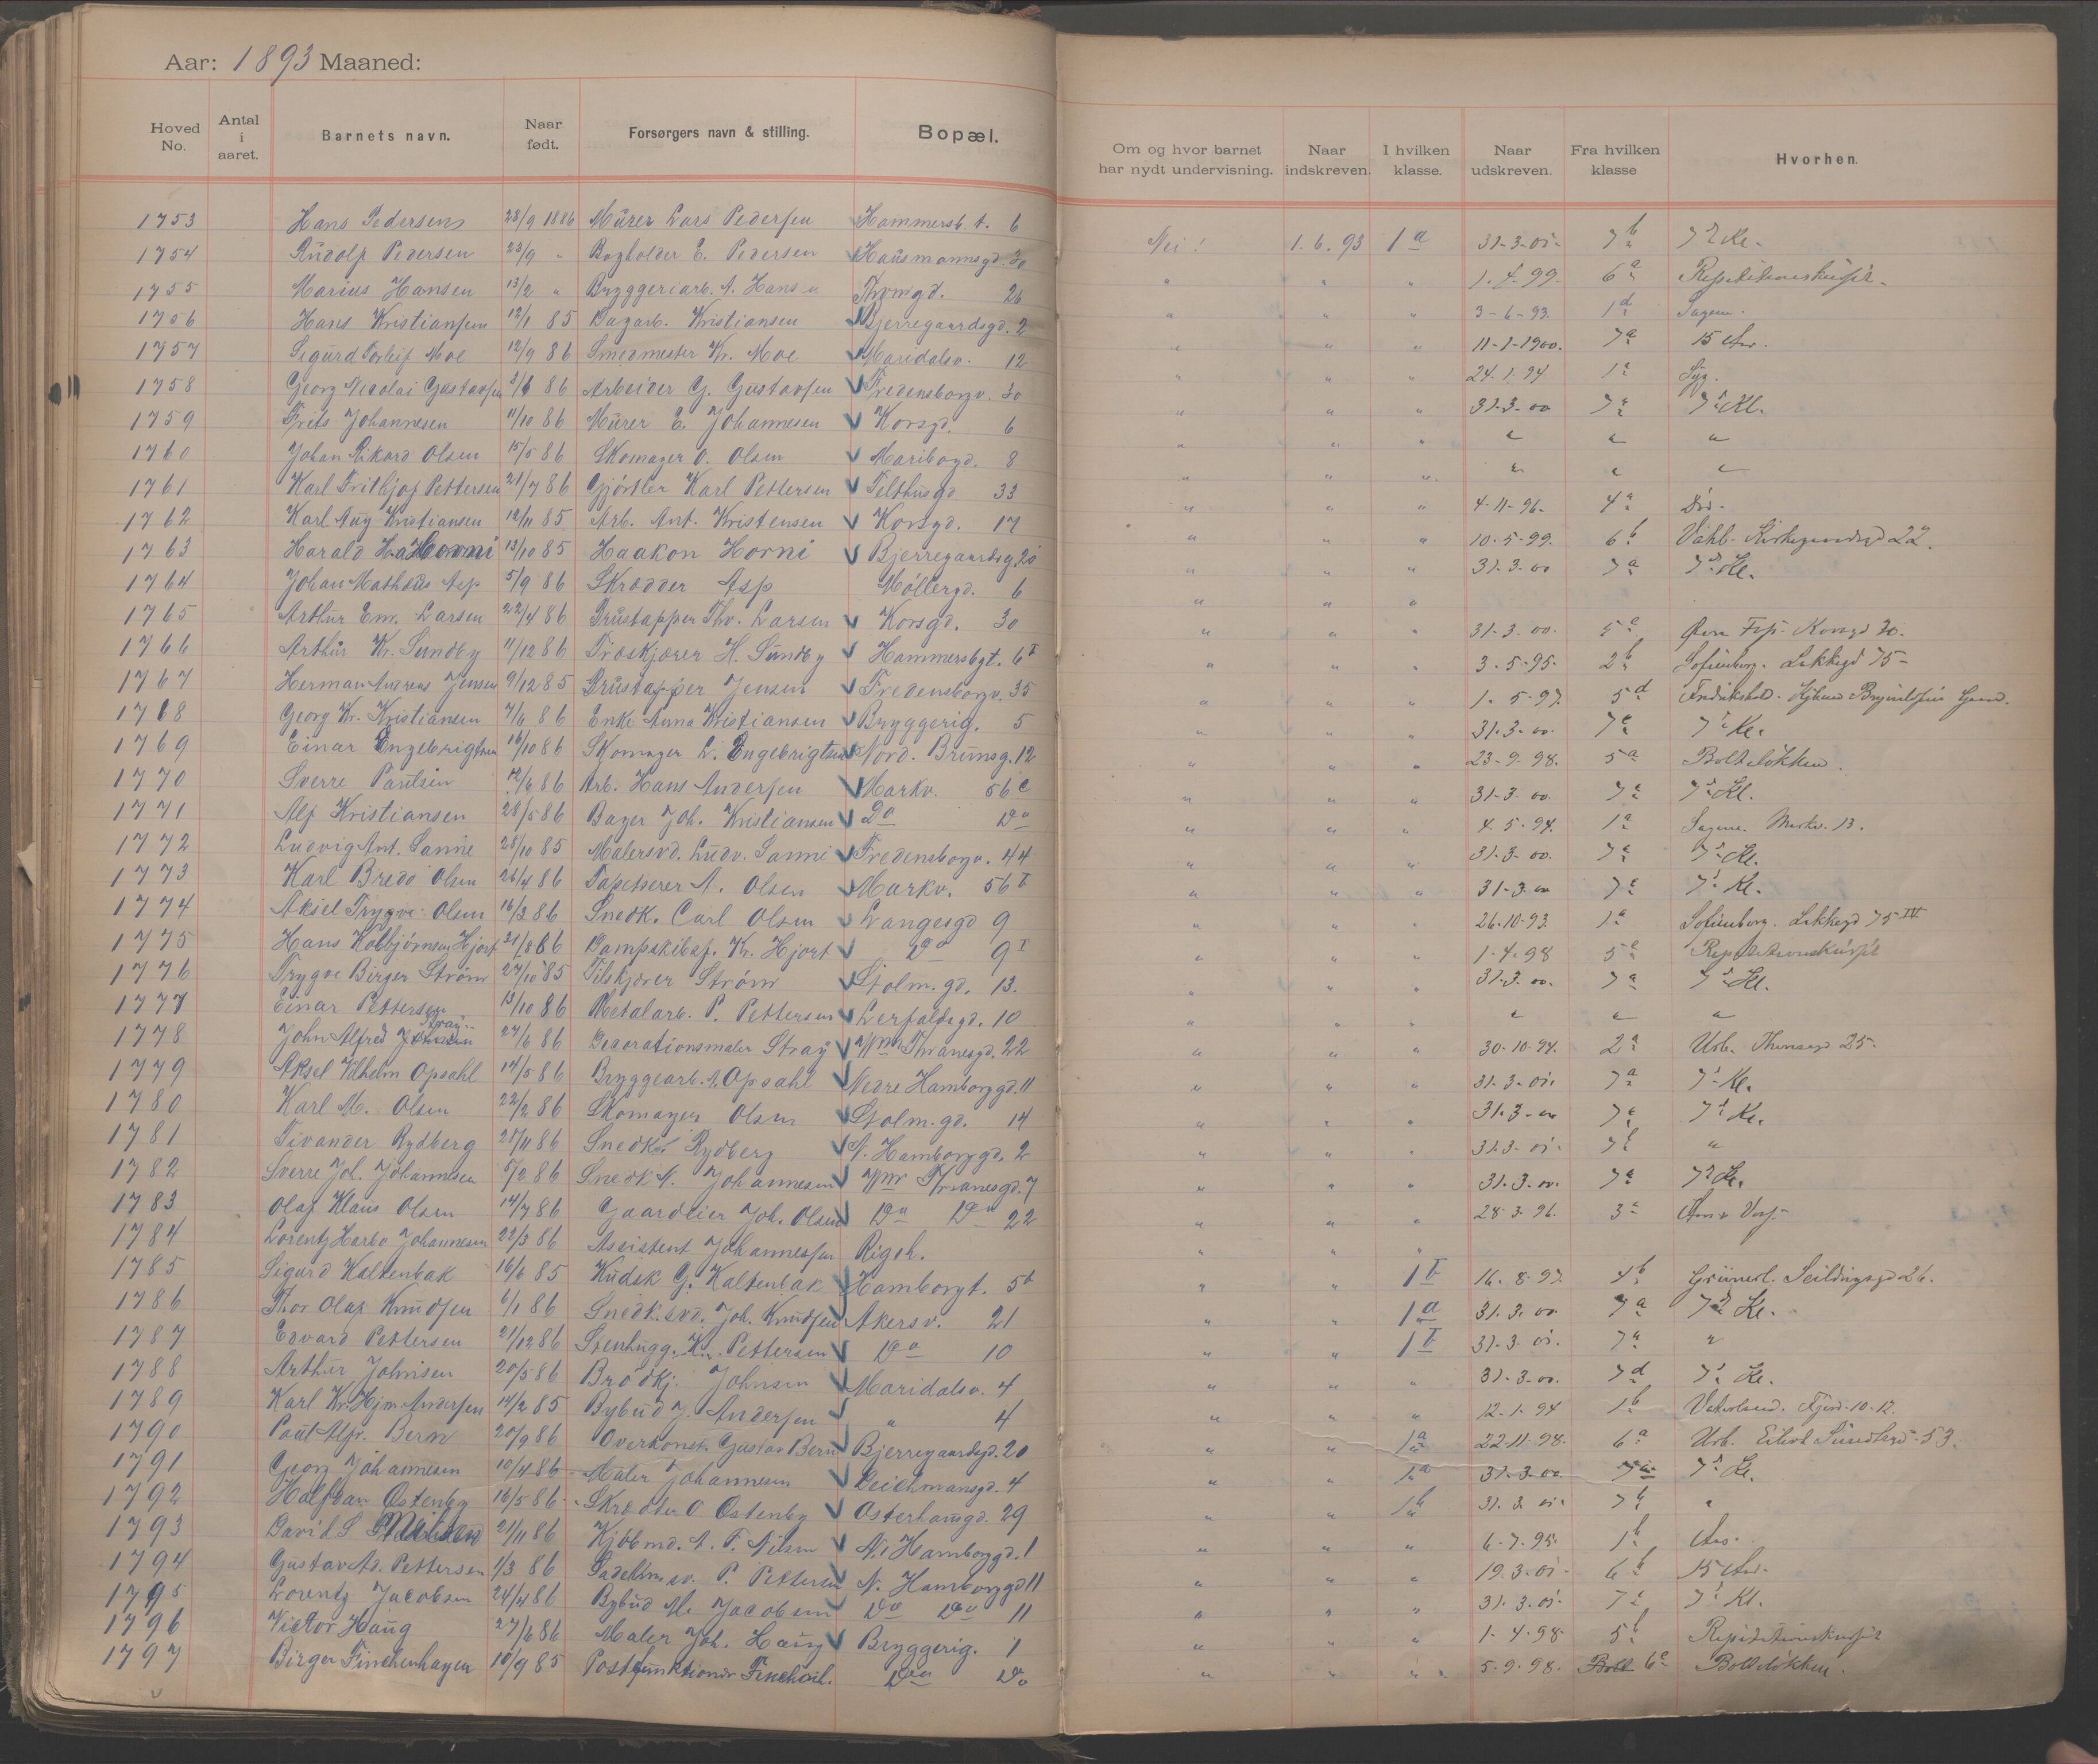 Aar: 1893 Maaned:
Hoved No. Antal i aaret. Barnets navn. Naar født. Forsørgers navn & stilling. Bopæl. Om og hvor barnet har nydt undervisning. Naar indskreven. I hvilken klasse. Naar udskreven. Fra hvilken klasse Hvorhen.
1753 Hans Pedersen 23/9 1886 Mürer Lars Pedersen Hammersb. t. 6 Nei! 1.6.93 1a 31-3-01- 7b 7de Kl.
1754 Rüdolf Pedersen 23/9 " Bogholder E. Pedersen Haüsmannsgd. 30 " " " 1.4.99. 6a Repetitionskürset.
1755 Marius Hansen 13/2 " Bryggeriarb. A. Hansen Thomgd. 26 " " " 3-6-93. 1d Sagene.
1756 Hans Kristiansen 12/1 85 Dagarb. Kristiansen Bjerregaardsgd. 2 " " " 11-1-1900. 7a 15 Aar.
1757 Sigürd Torleif Moe 12/9 86 Smedmester Kr. Moe Maridalsv. 12 " " " 24.1.94 1a Syg.
1758 Georg Nicolai Güstavsen 3/6 86 Arbeider G. Güstavsen Fredensborgv. 30 " " " 31-3-00 7a 7de Kl.
1759 Frits Johannesen 11/10 86 Mürer E. Johannesen Korsgd. 6 " " " " " "
1760 Johan Rikard Olsen 15/5 86 Skomager O. Olsen Maribogd. 8 " " " " " "
1761 Karl Frithjof Pettersen 21/7 86 Gjørtler Karl Pettersen Telthüsgd 33 " " " 4-11-96- 4a Død.
1762 Karl Aüg Kristiansen 12/11 85 Arb. Ant. Kristensen Korsgd. 17 " " " 10-5-99. 6b Vahl. Kirkegaardsgd 22.
1763 Harald Horni 13/10 85 Haakon Horni Bjerregaardsg. 20 " " " 31-3-00 7a 7de Kl.
1764 Johan Mathæüs Asp 5/9 86 Skrædder Asp Møllergd. 6 " " "
1765 Arthür Em. Larsen 22/4 86 Prüstapper Thv. Larsen Korsgd. 30 " " " 31-3-00. 5a Korsgd 30.
1766 Arthür Kr. Sundby 11/12 86 Træskjærer H. Sündby Hammersbgt. 6 I " " " 3-5-95. 2b Sofienberg. Lakkegd 75-
1767 Herman Andreas Jensen 9/12 85 Prüstapper Jensen Fredensborgv. 35 " " " 1.5-97. 5d Fredrikshald.
1768 Georg Kr. Kristiansen 7/6 86 Enke Anna Kristiansen Bryggerig. 5 " " " 31.3-00. 7a 7de Kl.
1769 Einar Engebrigtsen 16/10 86 Skomager L. Engebrigtsen Nord. Brünsg. 12 " " " 23-9-98. 5a Bolteløkken.
1770 Sverre Paülsen 12/6 86 Arb. Hans Andersen Markv. 56 c " " " 31-3-00. 7a 7de Kl.
1771 Alf Kristiansen 28/5 86 Bager Joh. Kristiansen Do Do " " " 4.5-94. 1a Sagene. Markv. 13.
1772 Lüdvig Ant. Sanne 28/10 85 Malersvd. Lüdv. Sanne Fredensborgv. 44 " " " 31-3-00. 7a 7de Kl.
1773 Karl Bredo Olsen 26/4 86 Tapetserer A. Olsen Markv. 56 I " " " 31-3-00 7a 7de Kl.
1774 Aksel Trygve Olsen 16/3 86 Snedk. Carl Olsen Langesgd 9 " " " 26-10-93. 1a Sofienberg. Lakkegd 75 IV
1775 Hans Kolbjørnsen Hjort 31/8 86 Dampskibsf. Kr. Hjort Do 9 I " " " 1-4-98 5a Repetitionskürset
1776 Trygve Birger Strøm 27/10 85 Filskjærer Strøm Stolm. gd. 13. " " " 31-3-00. 7a 7de Kl.
1777 Einar Pettersen 13/10 86 Metalarb. P. Pettersen Lerfaldsgd. 10 " " " " " "
1778 John Alfred Stray 27/6 86 Decorationsmaler Stray Wm Thranesgd. 22 " " " 30-10-94. 2a Urb. Thorsgd 25-
1779 Aksel Vilhelm Opsahl 14/5 86 Bryggearb. A. Opsahl Nedre Hamborggd. 11 " " " 31-3-01. 7a 7de Kl.
1780 Karl M. Olsen 22/2 86 Skomager Olsen Stolm. gd. 14 " " " 31.3-00 7a 7de Kl.
1781 Tivander Rydberg 28/11 86 Snedker Rydberg N. Hamborggd. 2 " " " 31.3-01- 7b "
1782 Sverre Joh. Johannesen 5/2 86 Snedk A. Johannesen Wm Thranesgd. 7 " " " 31.3-00. 7a 7de Kl.
1783 Olaf Klaus Olsen 14/7 86 Gaardeier Joh. Olsen Do Do 22 " " " 28-3-96. 3a
1784 Lorentz Harbo Johannesen 22/3 86 Assistent Johannesen Rigsh. " " "
1785 Sigurd Kaltenbak 16/6 85 Küdsk G. Kaltenbak Hamborgt. 5b " " 1b 16.8-97. 4b Grünerl. Seildugsgd 26.
1786 Thor Olaf Knüdsen 6/1 86 Snedk. svd. Joh. Knüdsen Akersv. 21 " " 1a 31.3.00. 7a 7de Kl.
1787 Edvard Pettersen 21/12 86 Stenhugg. K. Pettersen Do 10 " " 1b 31-3.01. 7a "
1788 Arthür Johnsen 20/5 86 Brødkj. Johnsen Maridalsv. 4 " " " 31-3-00. 7d 7de Kl.
1789 Karl Kr. Hjm. Andersen 14/2 85 Bybüd J. Andersen " 4 " " " 12-1-94 1b Vaterland. Fjerd. 10-12.
1790 Paül Alfr. Bern 20/9 86 Overkonst. Güstav Bern Bjerregaardsgd. 20 " " 1a 22-11-98. 6a Urb. Eilert Sündtsgd 53.
1791 Georg Johannesen 10/4 86 Maler Johannesen Deichmansgd. 4 " " 1a 31-3-00 7a 7de Kl.
1792 Halfdan Østenby 16/5 86 Skrædder O. Østenby Osterhausgd. 29 " " 1b 31.3.01. 7b "
1793 David S Nilsen 21/11 86 Kjøbmd. A. T. Nilsen N. Hamborggd. 1 " " " 6-7.95. 1b
1794 Gustav Ad. Pettersen 1/3 86 Sadelm. sv. P. Pettersen N. Hamborggd 11 " " " 19.3-01- 6b 15 Aar.
1795 Lorentz Jacobsen 24/4 86 Bybüd M. Jacobsen Do Do 11 " " " 31.3.01. 7a 7de Kl.
1796 Victor Haüg 27/6 86 Maler Joh. Haüg Bryggerig. 1 " " " 1-4-98 5b Repetitionskurset
1797 Birger Finckenhagen 10/9 85 Postfunktionær Finckenh. Do Do " " " 5-9-98. Bolt 6a Bolteløkken.